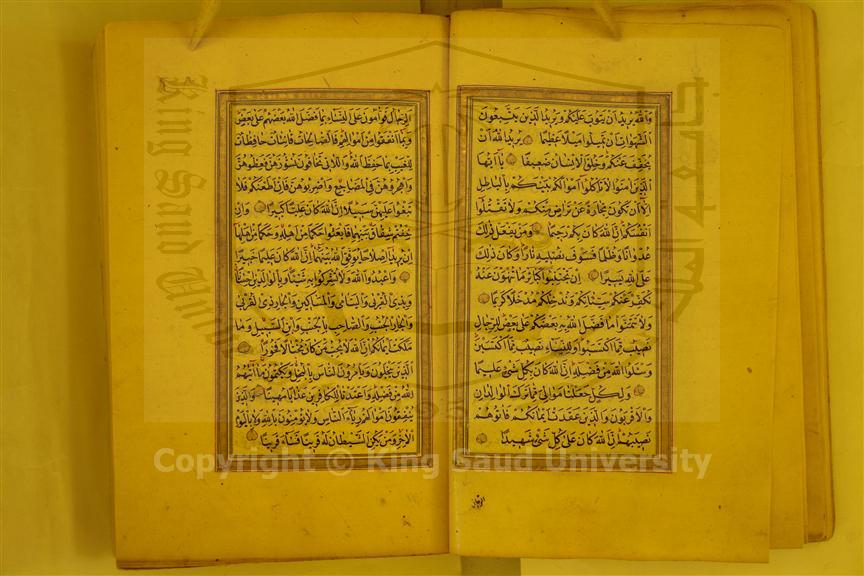 والله يريد ان يتوب عليكم ويريد الذين يتبعون
الشهوات ان تميلوا ميلا عظيما يريد الله ان
يخفف عنكم وخلق الانسان ضعيفا يا ايها
الذين امنوا لا تاكلوا اموالكم بينكم بالباطل
الا ان تكون تجارة عن تراض منكم ولا تقتلوا
انفسكم ان الله كان بكم رحيما ومن يفعل ذلك
عدوانا وظلما فسوف نصليه نارا وكان ذلك
على الله يسيرا ان تجتنبوا كبائر ما تنهون عنه
نكفر عنكم سيئاتكم وندخلكم مدخلا كريما
ولا تتمنوا ما فضل الله به بعضكم على بعض للرجال
نصيب مما اكتسبوا وللنساء نصيب مما اكتسبن
وسئلوا الله من فضله ان الله كان بكل شيء عليما
ولكل جعلنا موالي مما ترك الوالدان
والاقربون والذين عقدت ايمانكم فاتوهم
نصيبهم ان الله كان على كل شيء شهيدا
الرجال
الرجال قوامون على النساء بما فضل الله بعضهم على بعض
وبما انفقوا من اموالهم فالصالحات قانتات حافظات
للغيب بما حفظ الله واللاتي تخافون نشوزهن فعظوهن
واهجروهن في المضاجع واضربوهن فان اطعنكم فلا
تبغوا عليهن سبيلا ان الله كان عليا كبيرا وان
خفتم شقاق بينهما فابعثوا حكما من اهله وحكما من اهلها
ان يريدا اصلاحا يوفق الله بينهما ان الله كان عليما خبيرا
واعبدوا الله ولا تشركوا به شيئا وبالوالدين احسانا
وبذي القربى واليتامى والمساكين والجار ذي القربى
والجار الجنب والصاحب بالجنب وابن السبيل وما
ملكت ايمانكم ان الله لا يحب من كان مختالا فخورا
الذين يبخلون ويامرون الناس بالبخل ويكتمون ما اتيهم
الله من فضله واعتدنا للكافرين عذابا مهينا والذين
ينفقون اموالهم رئاء الناس ولا يؤمنون بالله ولا باليوم
الاخر ومن يكن الشيطان له قرينا فساء قرينا
King Saud University
جامعة الملك
1957
Copyright © King Saud University